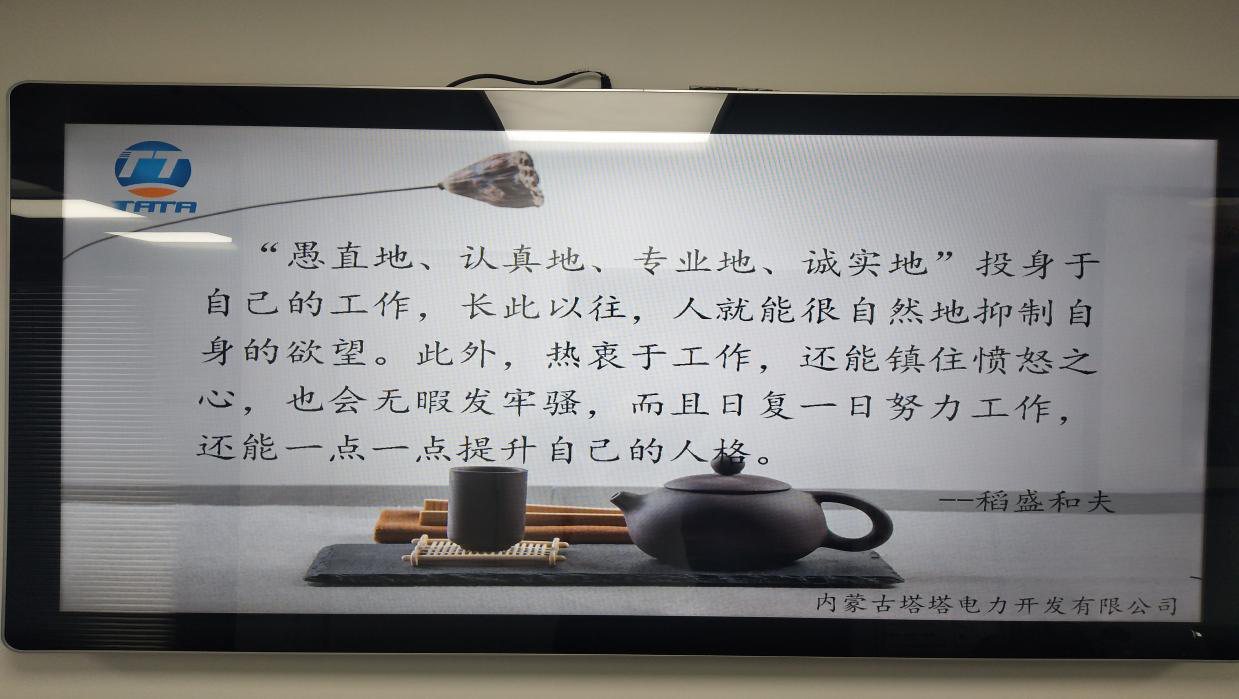 TATA
“愚直地、认真地、专业地、诚实地”投身于
自己的工作，长此以往，人就能很自然地抑制自
身的欲望。此外，热衷于工作，还能镇住愤怒之
心，也会无暇发牢骚，而且日复一日努力工作，
还能一点一点提升自己的人格。
--稻盛和夫
内蒙古塔塔电力开发有限公司